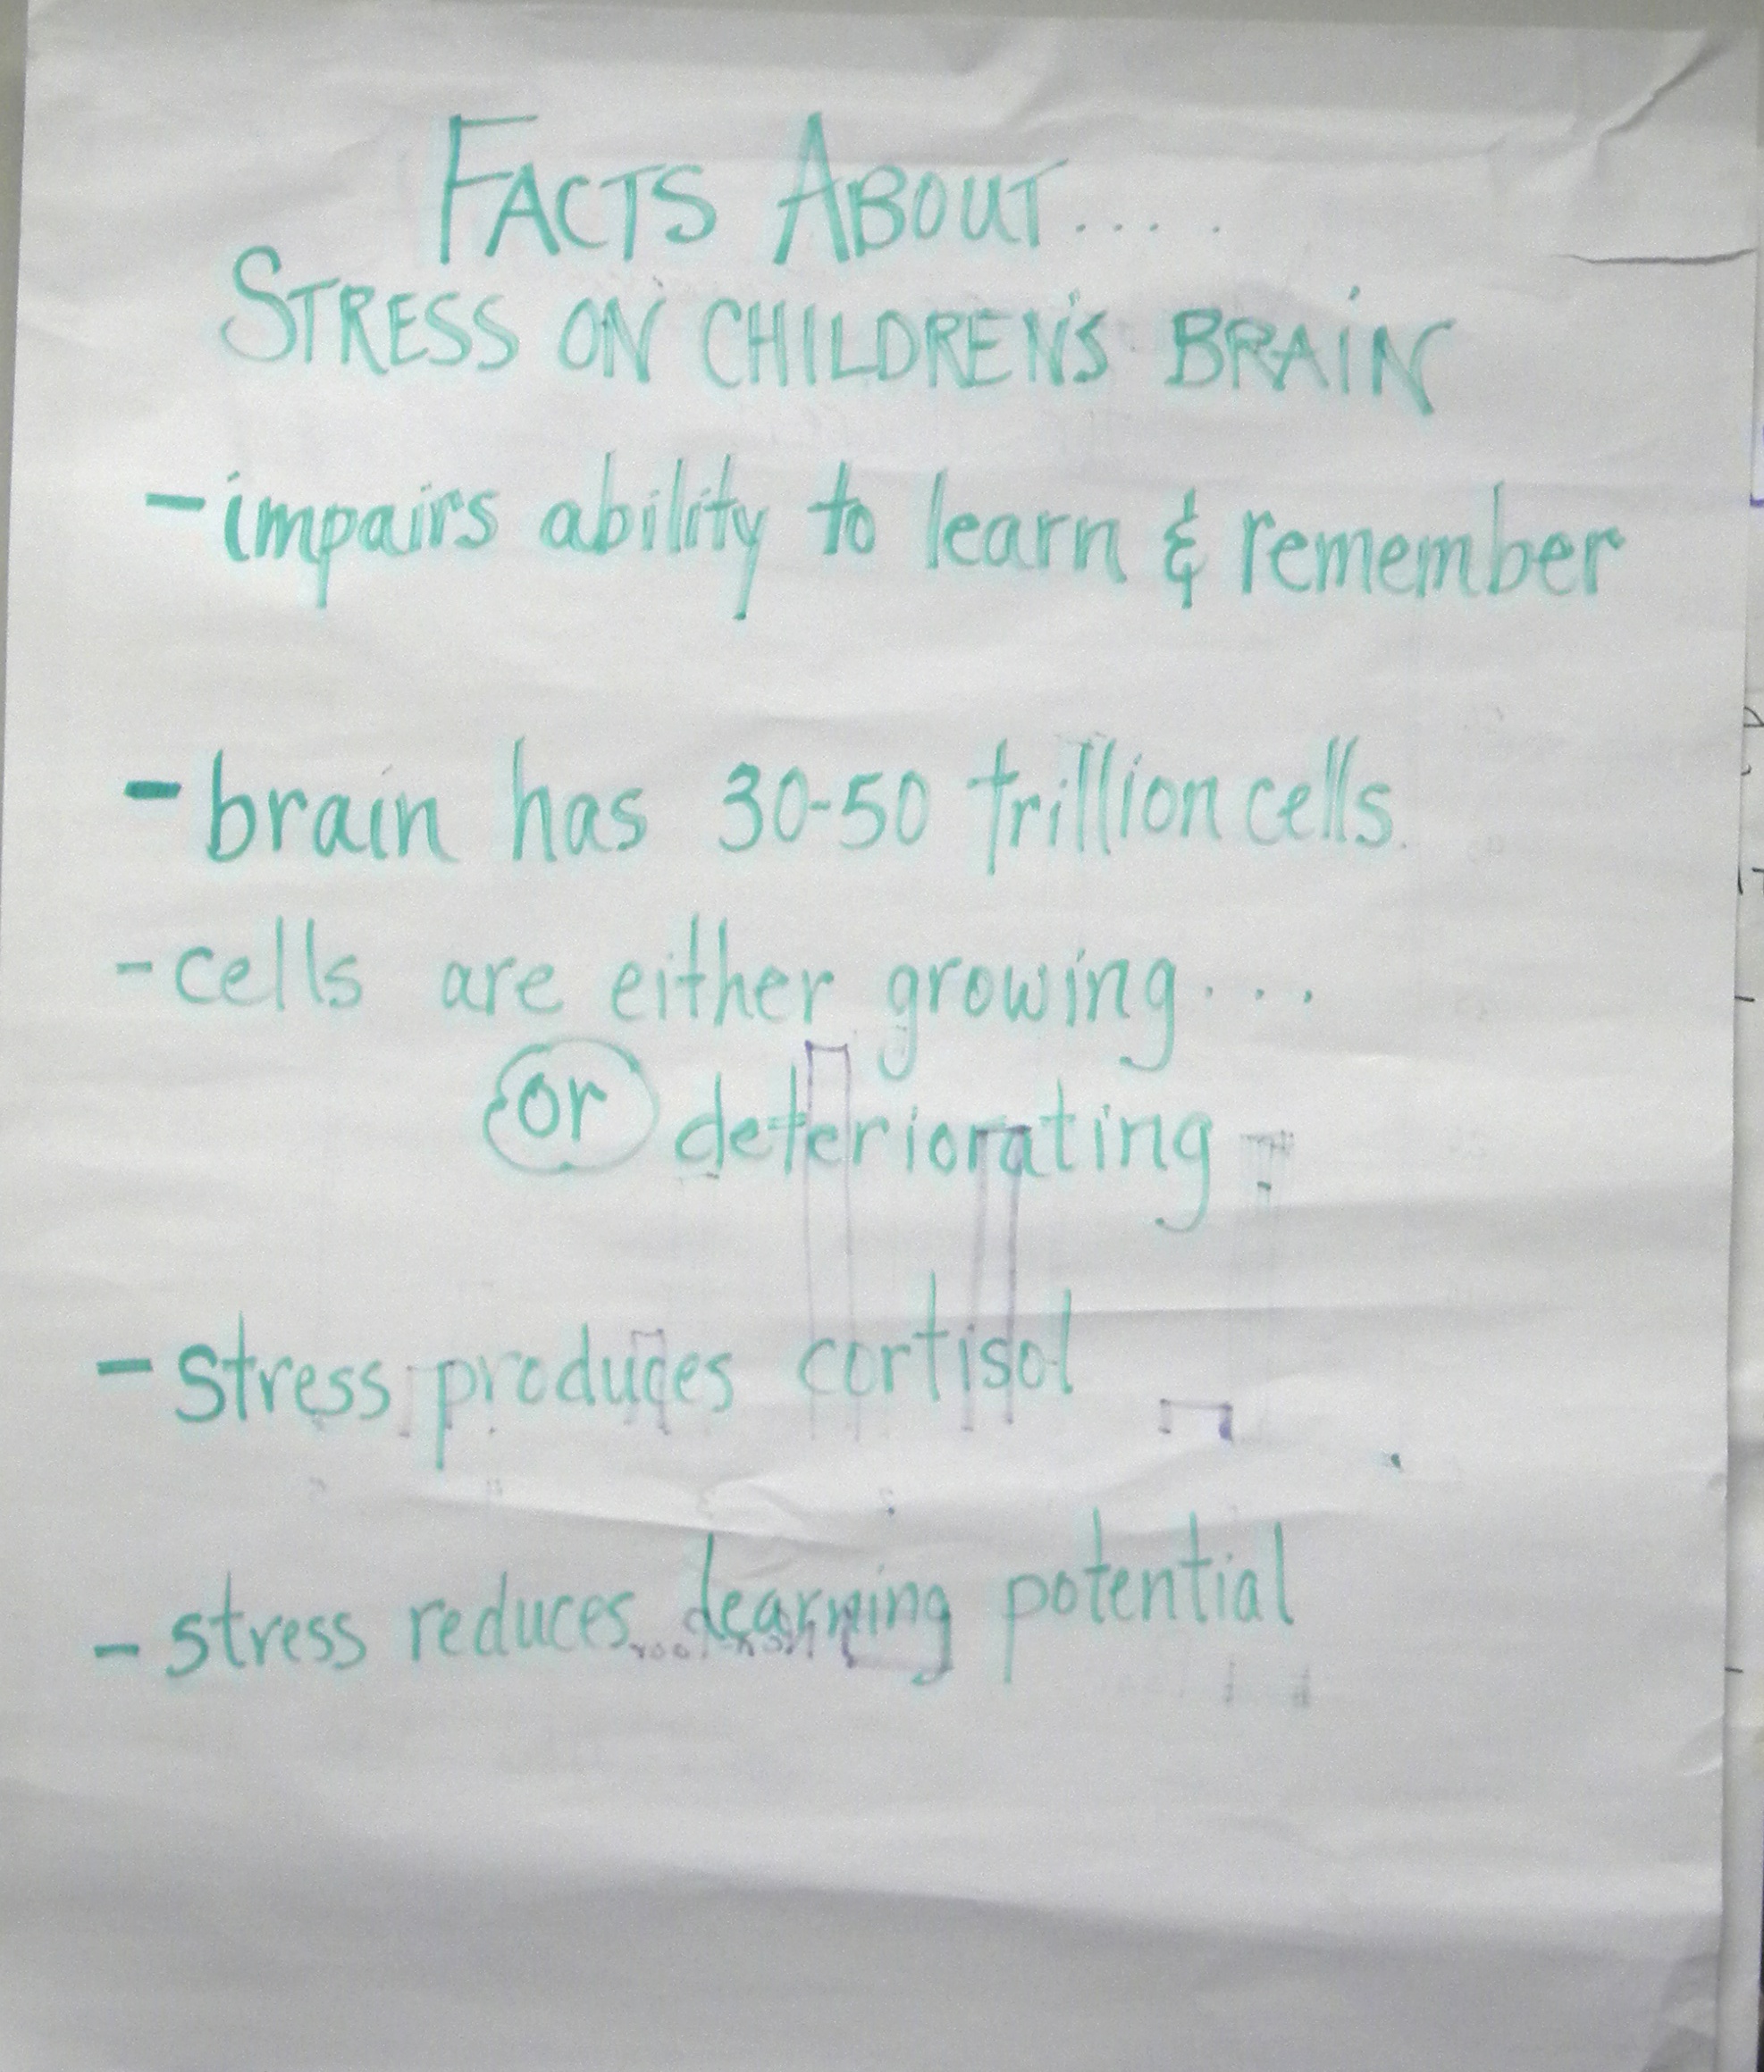 FACTS ABOUT....
STRESS ON CHILDREN'S BRAIN
- impairs ability to learn & remember
- brain has 30-50 trillion cells.
- cells are either growing...
or deteriorating
- stress produces cortisol
- stress reduces learning potential